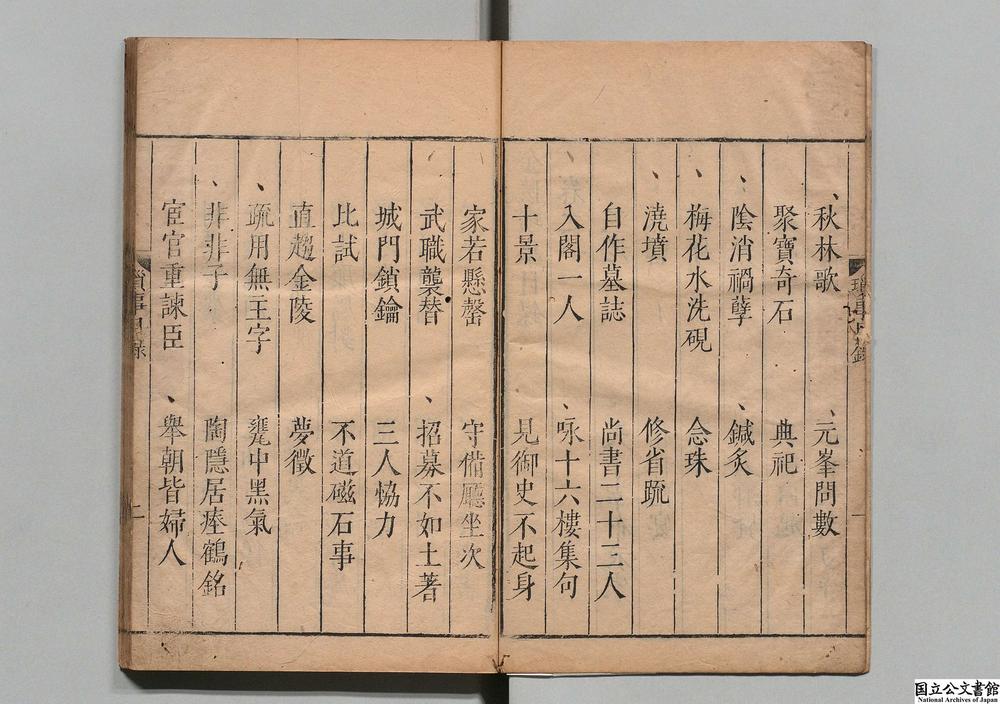 秋林歌 元峯問數
聚寶奇石 典祀
陰消禍孽 鍼灸
梅花水洗硯 念珠
澆墳 修省疏
自作墓誌 尚書二十三人
入閣一人 咏十六樓集句
十景 見御史不起身
家若懸罄 守備廳坐次
武職襲替 招募不如土著
城門鎖鑰 三人恊力
比試 不道磁石事
直趨金陵 夢徵
疏用無王字 甕中黑氣
非非子 陶隱居瘞鶴銘
宦官重諫臣 舉朝皆婦人
二
国立公文書館
National Archives of Japan